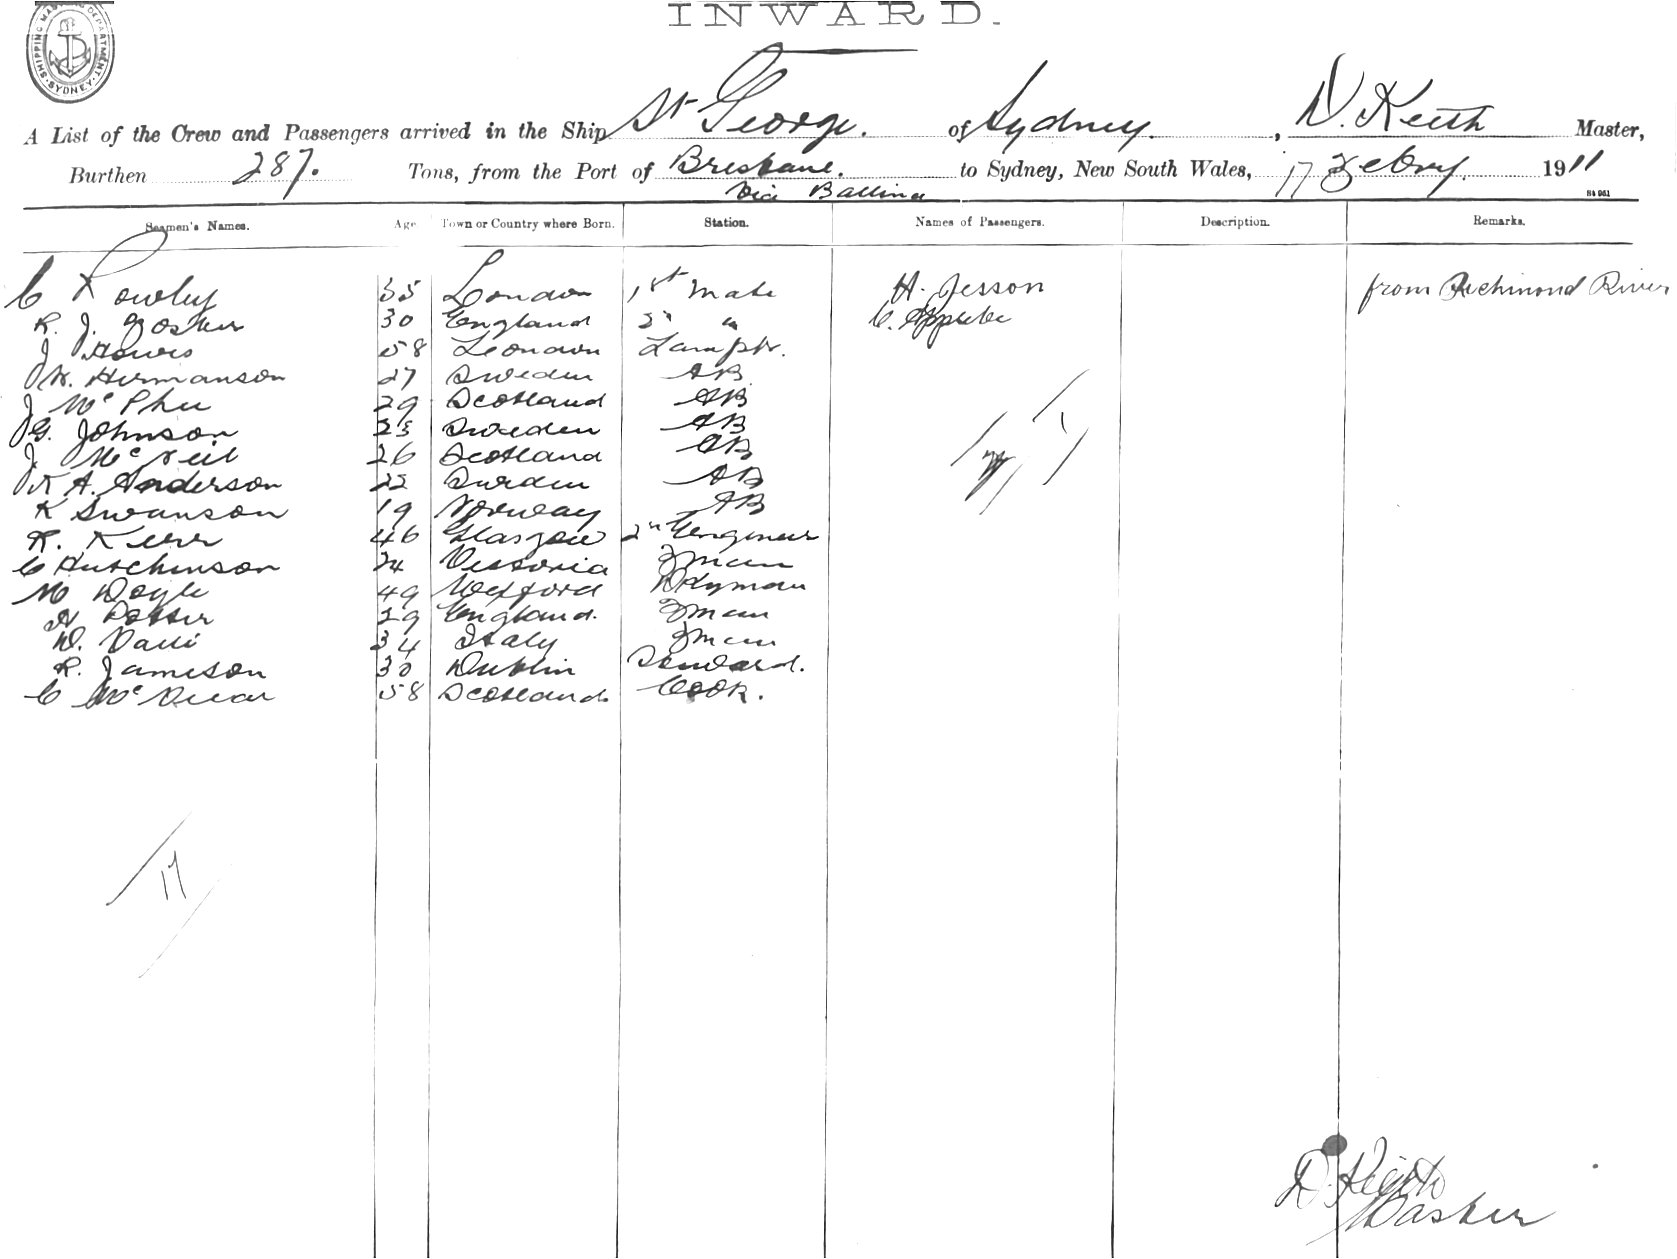 INWARD.
SHIPPING MASTERS DEPARTMENT. SYDNEY.
A List of the Crew and Passengers arrived in the Ship St George. of Sydney. , D. Keith Master,
Burthen 287. Tons, from the Port of Brisbane. to Sydney, New South Wales, 17 Febry. 1911
Via Ballina
Seamen's Names. Age Town or Country where Born. Station. Names of Passengers. Description. Remarks.
C Rowley 35 London 1st Mate H. Jesson from Richmond River
R. J. 30 England 2nd " C.
J 58 London Lamptr.
W. Hermanson 27 Sweden AB
J McPhee 29 Scotland AB
G. Johnson 23 Sweden AB
J. McNeil 26 Scotland AB
K A. Anderson 22 Sweden AB
K Swanson 19 Norway AB
R. Kerr 46 Glasgow 2nd Engineer
C Hutchinson 24 Victoria Fman
M Doyle 49 Wexford Dkyman
29 England. Fman
D. 34 Italy Fman
R. Jameson 30 Dublin Steward.
C Mc 58 Scotland Cook.
17
D. Keith
Master